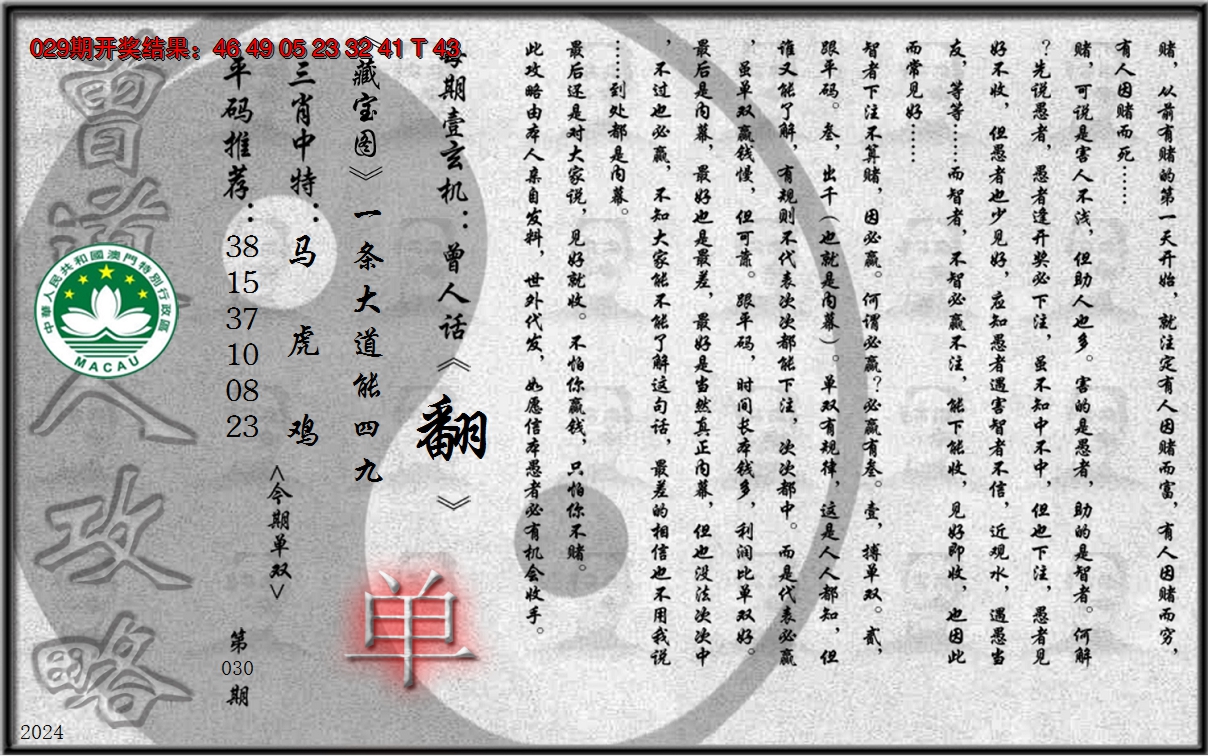 029期开奖结果：46 49 05 23 32 41 T 43
赌，从前有赌的第一天开始，就注定有人因赌而富，有人因赌而穷，
有人因赌而死……
赌，可说是害人不浅，但助人也多。害的是愚者，助的是智者。何解
？先说愚者，愚者逢开奖必下注，虽不知中不中，但也下注，愚者见
好不收，但愚者也少见好，应知愚者遇害智者不信，近观水，遇愚当
友，等等……而智者，不智必赢不注，能下能收，见好即收，也因此
而常见好……
智者下注不算赌，因必赢。何谓必赢？必赢有叁。壹，搏单双。贰，
跟平码。叁，出千（也就是内幕）。单双有规律，这是人人都知，但
谁又能了解，有规则不代表次次都能下注，次次都中。而是代表必赢
，虽单双赢钱慢，但可靠。跟平码，时间长本钱多，利润比单双好。
最后是内幕，最好也是最差，最好是当然真正内幕，但也没法次次中
，不过也必赢，不知大家能不能了解这句话，最差的相信也不用我说
……到处都是内幕。
最后还是对大家说，见好就收。不怕你赢钱，只怕你不赌。
此攻略由本人亲自发料，世外代发，如愿信本愚者必有机会收手。
每期壹玄机：曾人话《翻》
《藏宝图》一条大道能四九
单
三肖中特：马 虎 鸡
<今期单双>
平码推荐：
38
15
37
10
08
23
第
030
期
曾道人攻略
中華人民共和國澳門特別行政區
MACAU
2024